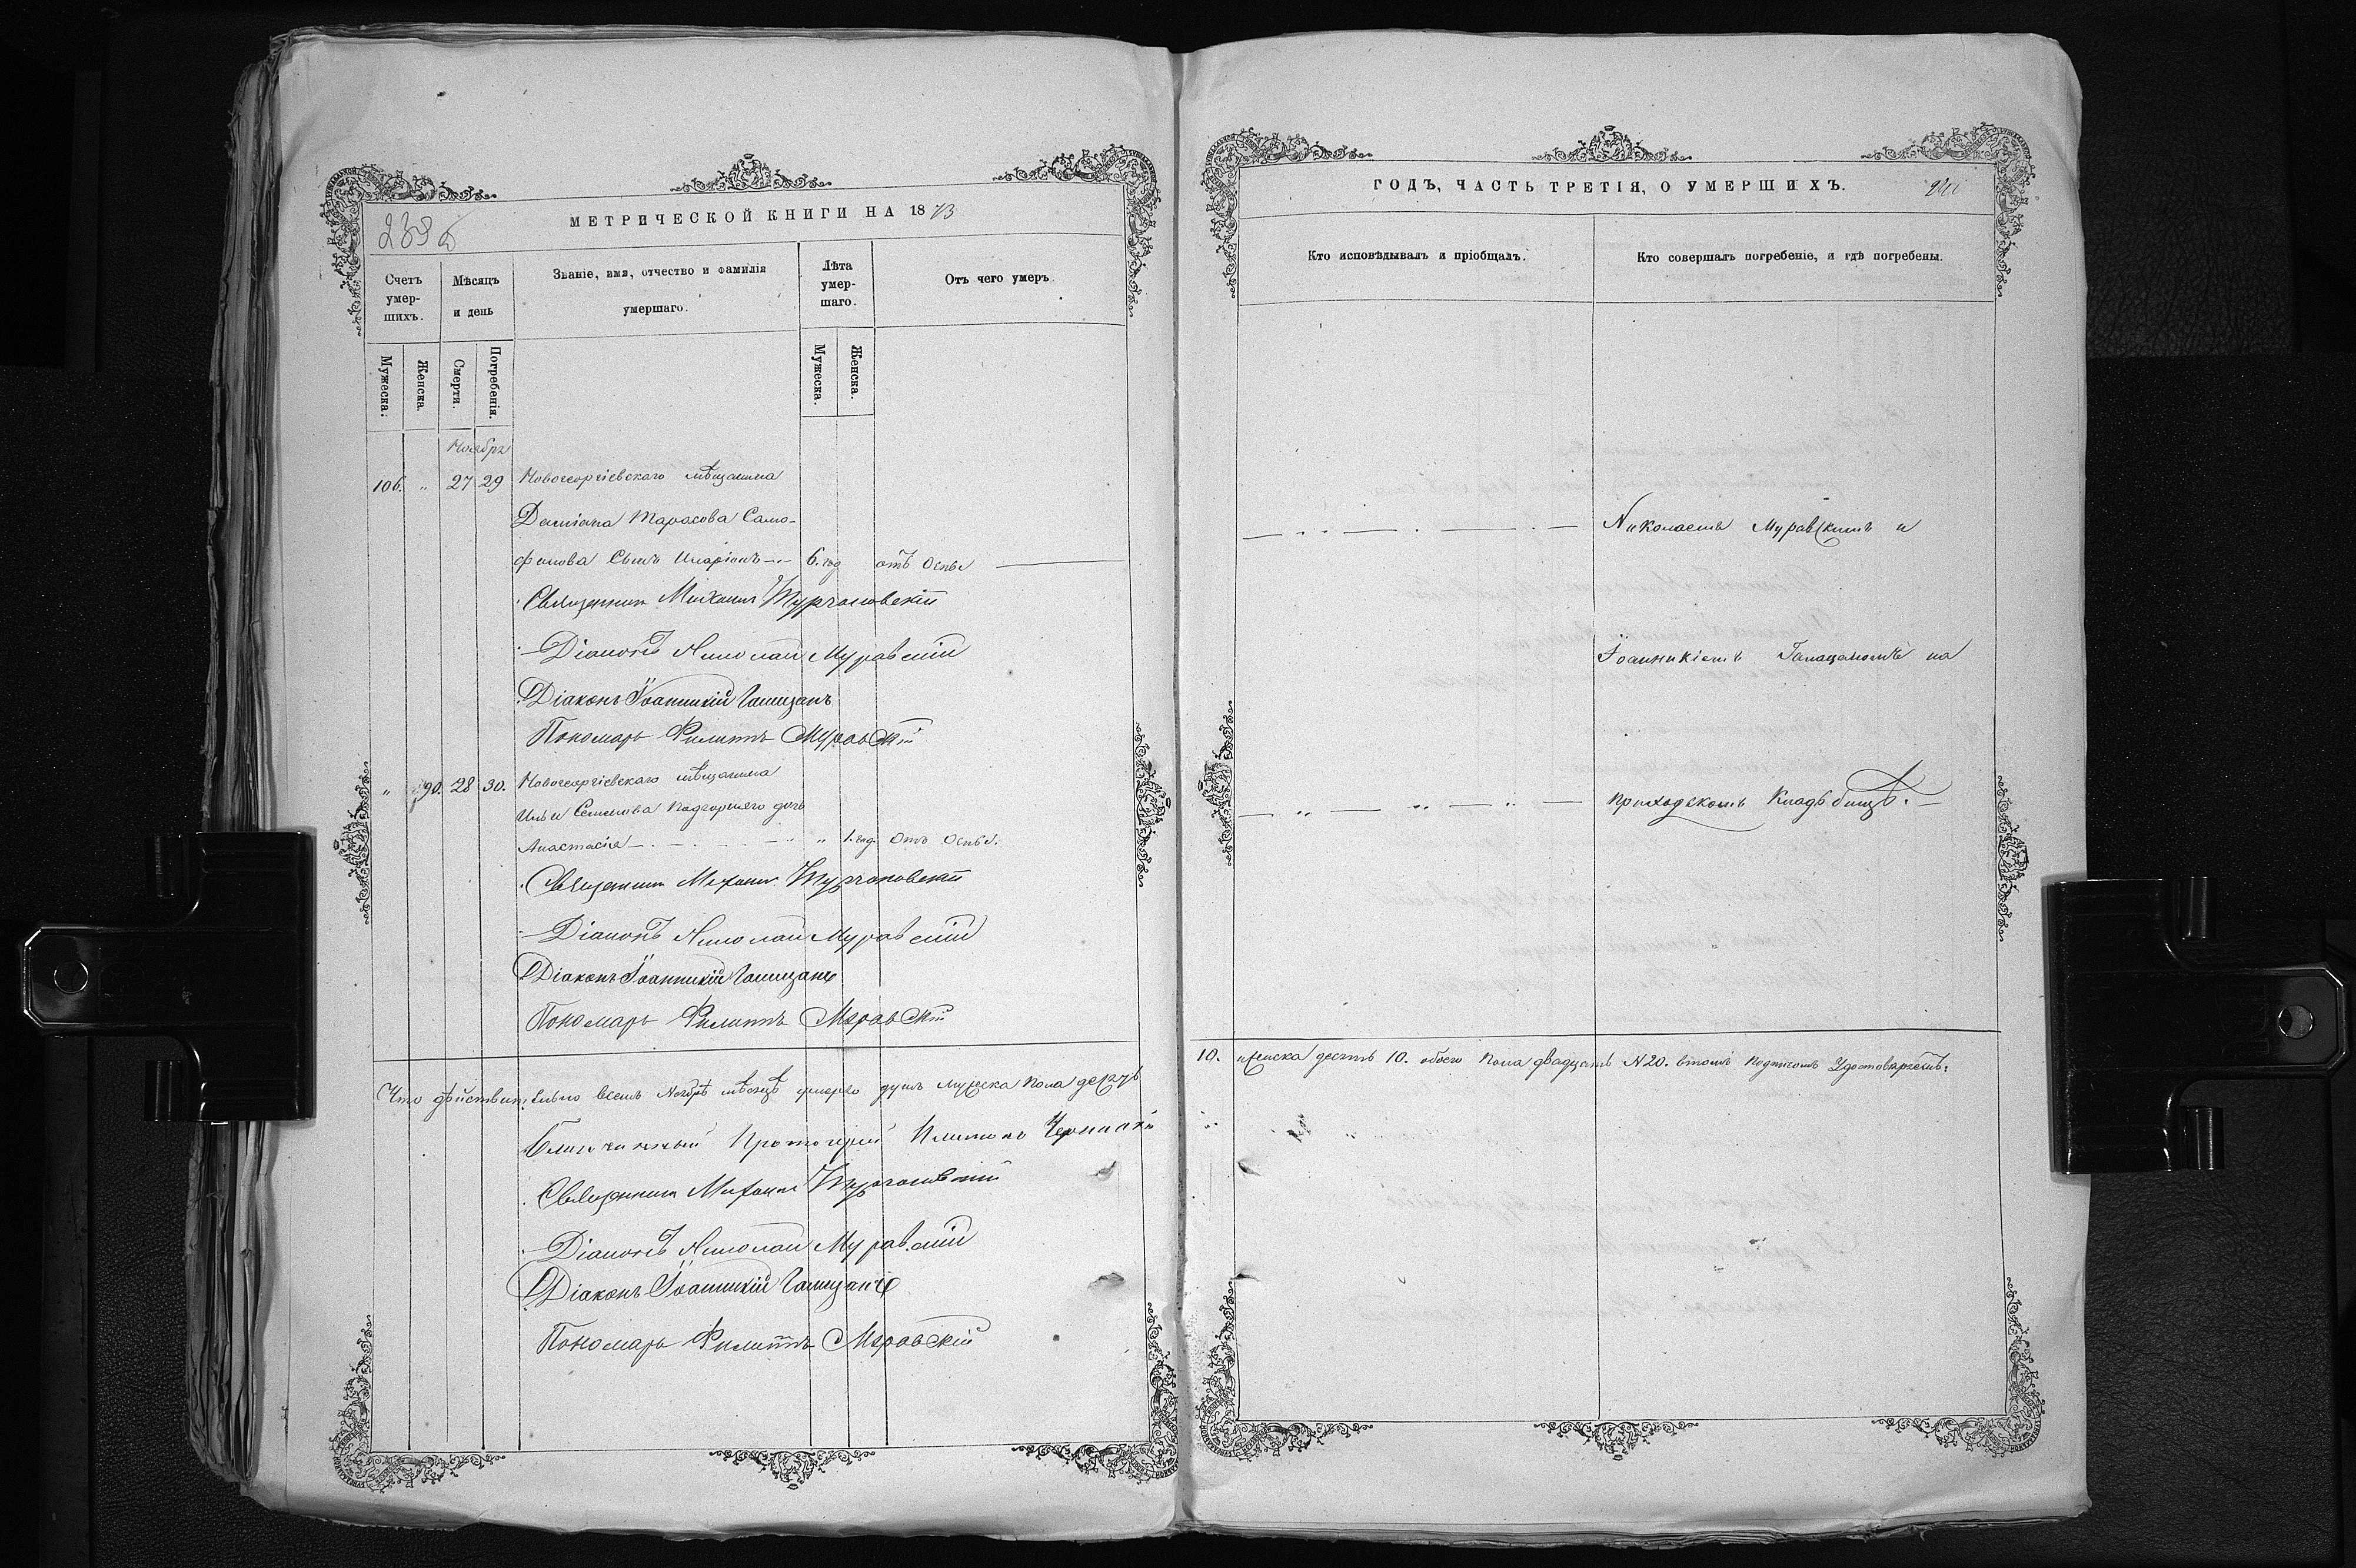 МЕТРИЧЕСКОЙ КНИГИ НА 1873
Счетъ умер-шихъ.
Мѣсяцъ и день
Званіе, имя, отчество и фамилія умершаго.
Лѣта умер-шаго.
Отъ чего умеръ.
Мужеска.
Женска.
Смерти.
Погребенія.
Мужеска.
Женска.
Ноябрь
106. „ 27 29 Новогеоргіевскаго мѣщанина
Даміана Тарасова Само-
фалова Сынъ Иларіонъ 6. год отъ Оспы
Священникъ Михаилъ
Діаконъ Николай Муравскій
Діаконъ Іоанникій Галицанъ
Пономарь Филиппъ Муравскій
„ 90. 28 30. Новогеоргіевскаго мѣщанина
Ильи Семенова Подгорнего дочь
Анастасія „ 1. год. Отъ Оспы.
Священникъ Михаилъ
Діаконъ Николай Муравскій
Діаконъ Іоанникій Галицанъ
Пономарь Филиппъ Муравскій
Что дѣйствительно всемъ Ноябрѣ мѣсяцѣ умерло душъ мужеска пола десять
Благочинный Протоіерей
Священникъ Михаилъ
Діаконъ Николай Муравскій
Діаконъ Іоанникій Галицанъ
Пономарь Филиппъ Муравскій
ГОДЪ, ЧАСТЬ ТРЕТІЯ, О УМЕРШИХЪ.
Кто исповѣдывалъ и пріобщалъ.
Кто совершалъ погребеніе, и гдѣ погребены.
Николаемъ Муравскимъ и
Іоанникіемъ Галицаномъ на
приходскомъ Кладбищѣ.
10. женска десять 10. обоего пола двадцать N20. втомъ подписомъ Удостовѣряемъ: